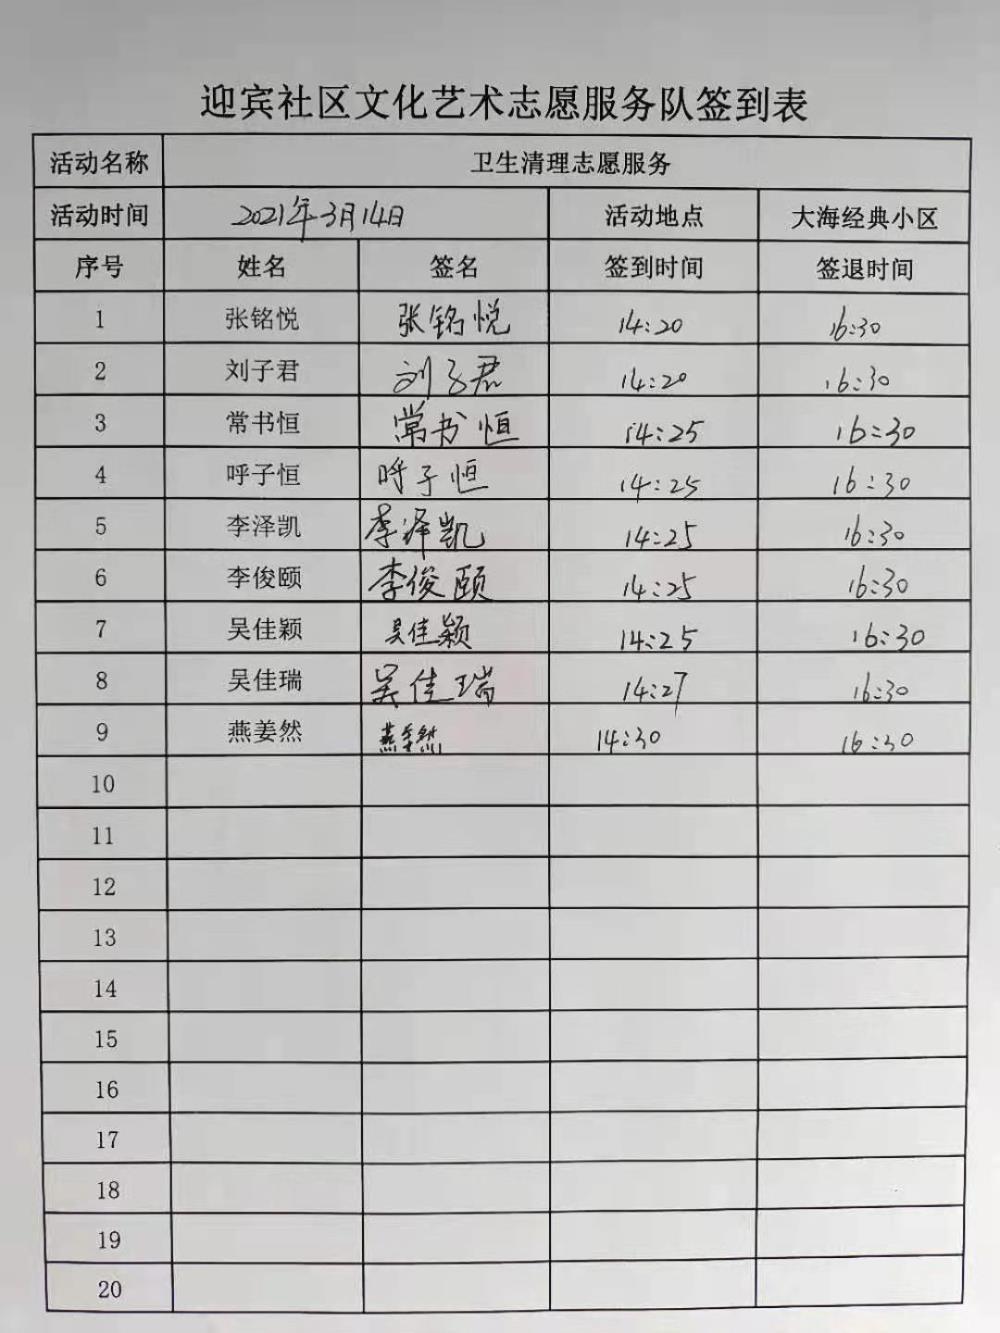 迎宾社区文化艺术志愿服务队签到表
活动名称 卫生清理志愿服务
活动时间 2021年3月14日 活动地点 大海经典小区
序号 姓名 签名 签到时间 签退时间
1 张铭悦 张铭悦 14:20 16:30
2 刘子君 刘子君 14:20 16:30
3 常书恒 常书恒 14:25 16:30
4 呼子恒 呼子恒 14:25 16:30
5 李泽凯 李泽凯 14:25 16:30
6 李俊颐 李俊颐 14:25 16:30
7 吴佳颖 吴佳颖 14:25 16:30
8 吴佳瑞 吴佳瑞 14:27 16:30
9 燕姜然 燕姜然 14:30 16:30
10
11
12
13
14
15
16
17
18
19
20